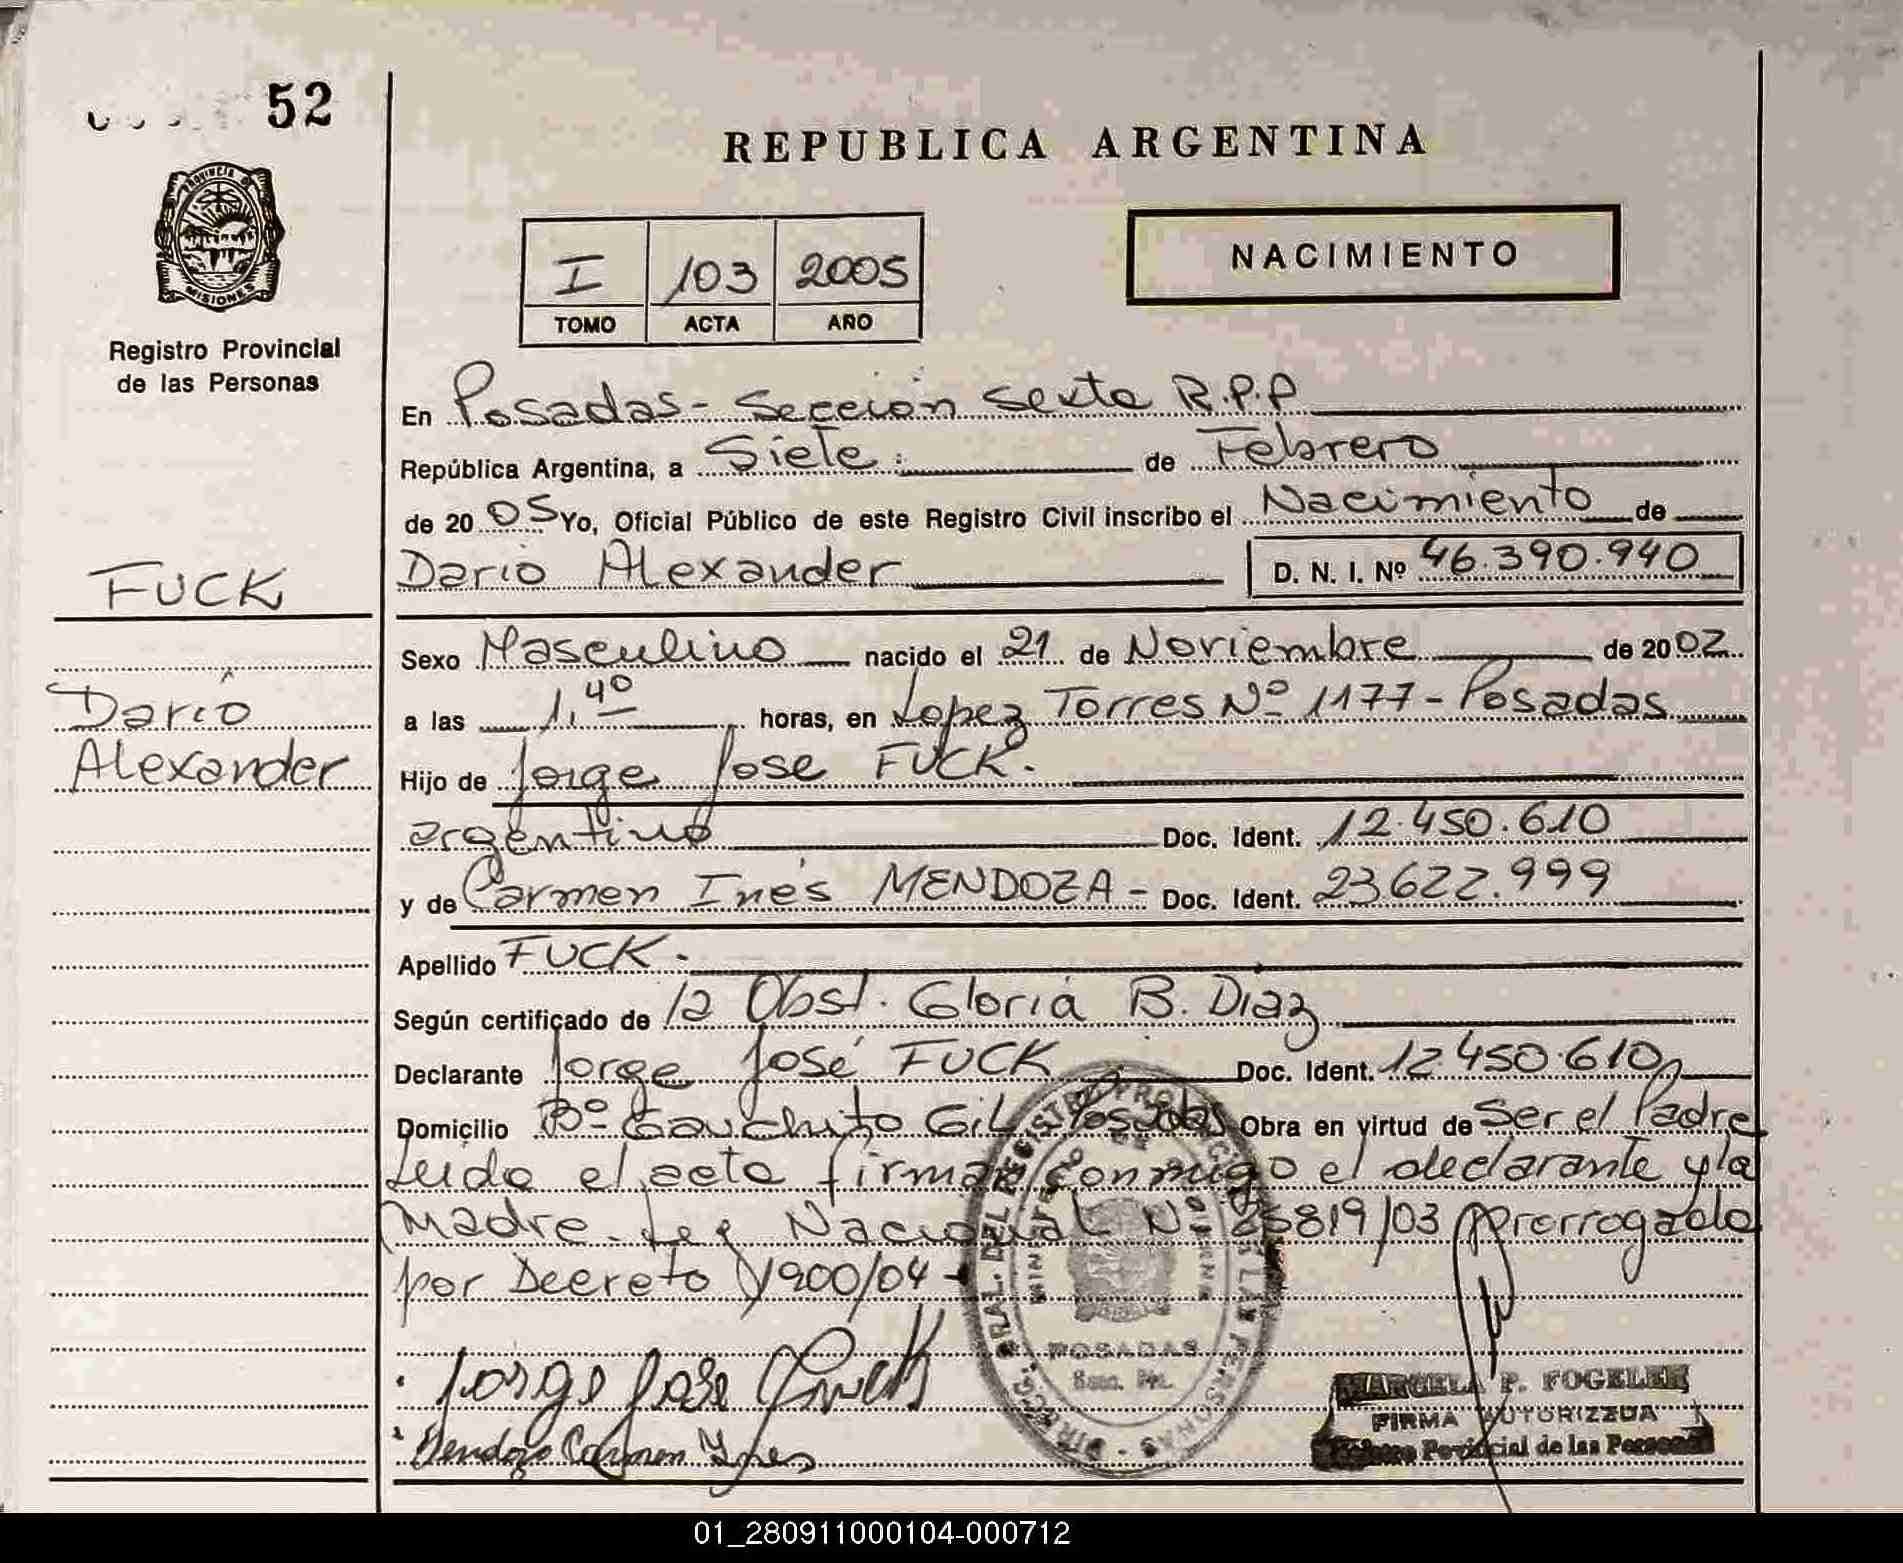 52
REPUBLICA ARGENTINA
PROVINCIA DE
MISIONES
Registro Provincial
de las Personas
I 103 2005
TOMO ACTA AÑO
NACIMIENTO
En Posadas - Sección Sexta R.P.P
República Argentina, a Siete de Febrero
de 2005 Yo, Oficial Público de este Registro Civil inscribo el Nacimiento de
Dario Alexander D. N. I. Nº 46.390.940
FUCK
Darió
Alexander
Sexo Masculino nacido el 21 de Noviembre de 2002
a las 1,40 horas, en Lopez Torres Nº 1177 - Posadas
Hijo de Jorge Jose FUCK.
argentino Doc. Ident. 12.450.610
y de Carmen Inés MENDOZA - Doc. Ident. 23.622.999
Apellido FUCK.
Según certificado de la Obst. Gloria B. Diaz
Declarante Jorge José FUCK Doc. Ident. 12.450.610
Domicilio Bº Gauchito Gil Posadas Obra en virtud de Ser el Padre
Leida el acta firman conmigo el declarante y la
Madre. Ley Nacional Nº 25819/03 prorrogada
por Decreto 1900/04 -
Jorge Jose Fuck
Mendoza Carmen Ynes
POSADAS
MARCELA P. FOGELER
FIRMA AUTORIZADA
Provincial de las Personas
01_280911000104-000712